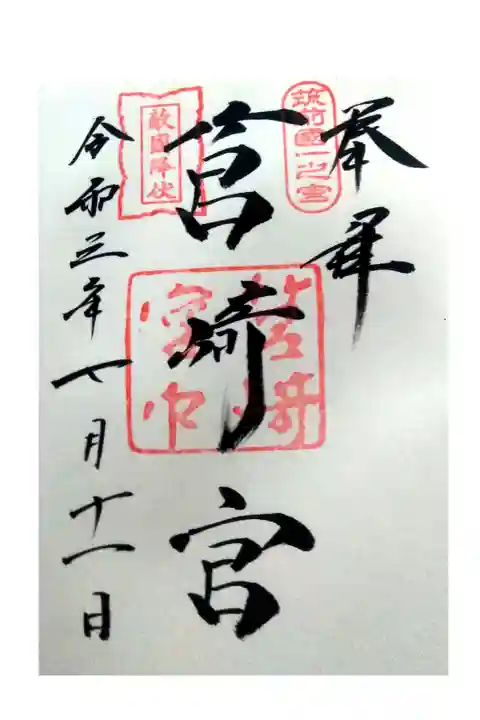 奉拝
筑前國一之宮
筥崎宮
敵國降伏
令和三年七月十一日